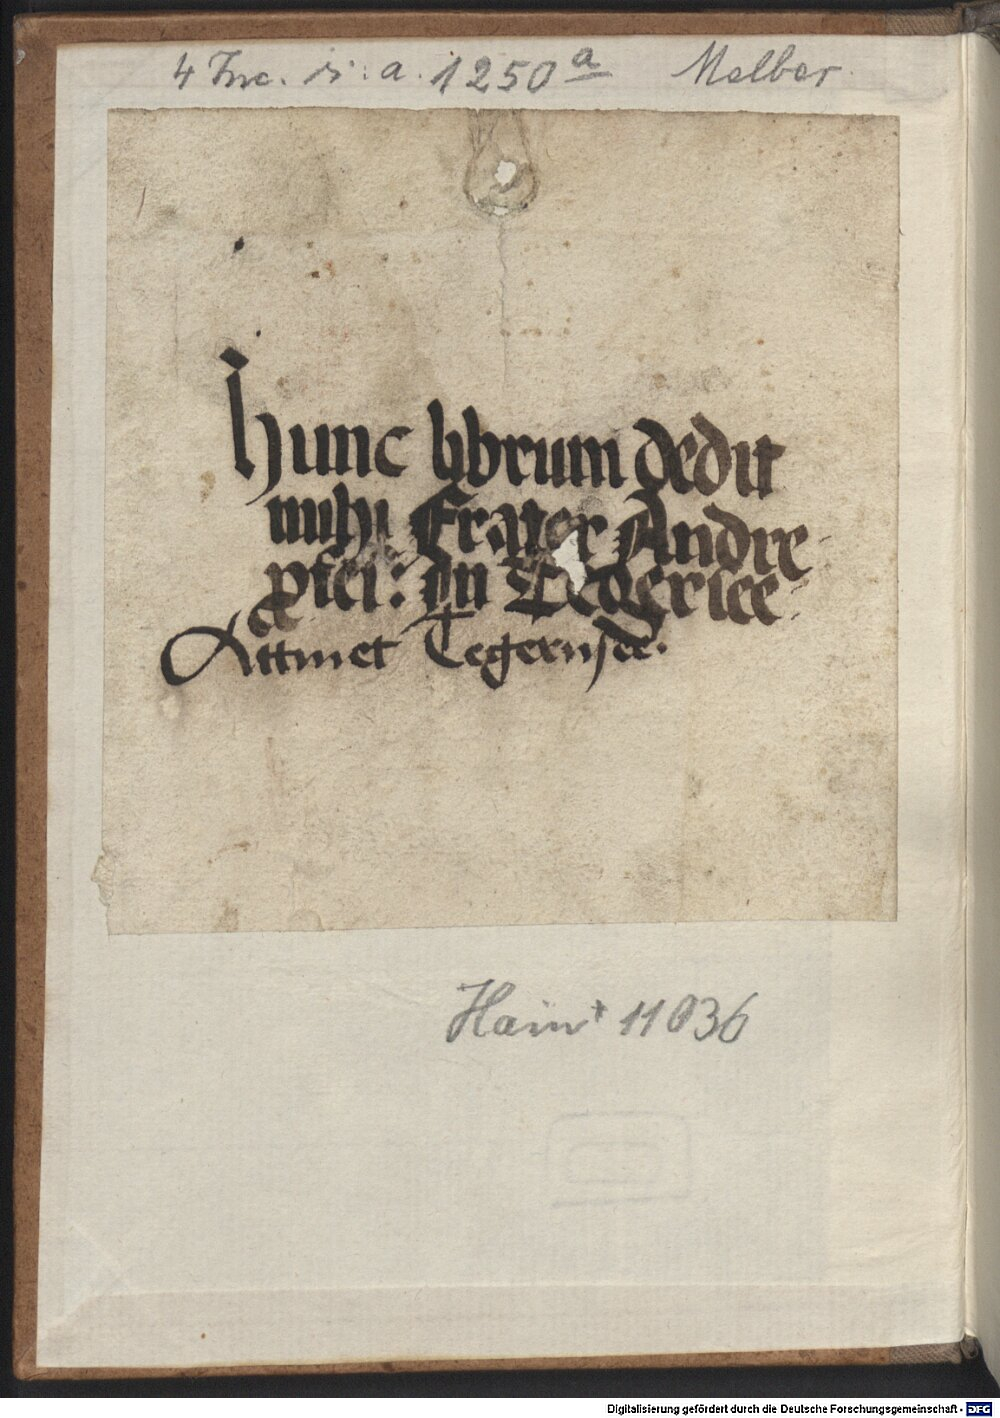 4 Inc. s. a. 1250 a Melber
hunc librum dedit
mihi Frater Andre
pfei: In Tegersee
Attinet Tegernsee.
Hain+ 11036
Digitalisierung gefördert durch die Deutsche Forschungsgemeinschaft - DFG